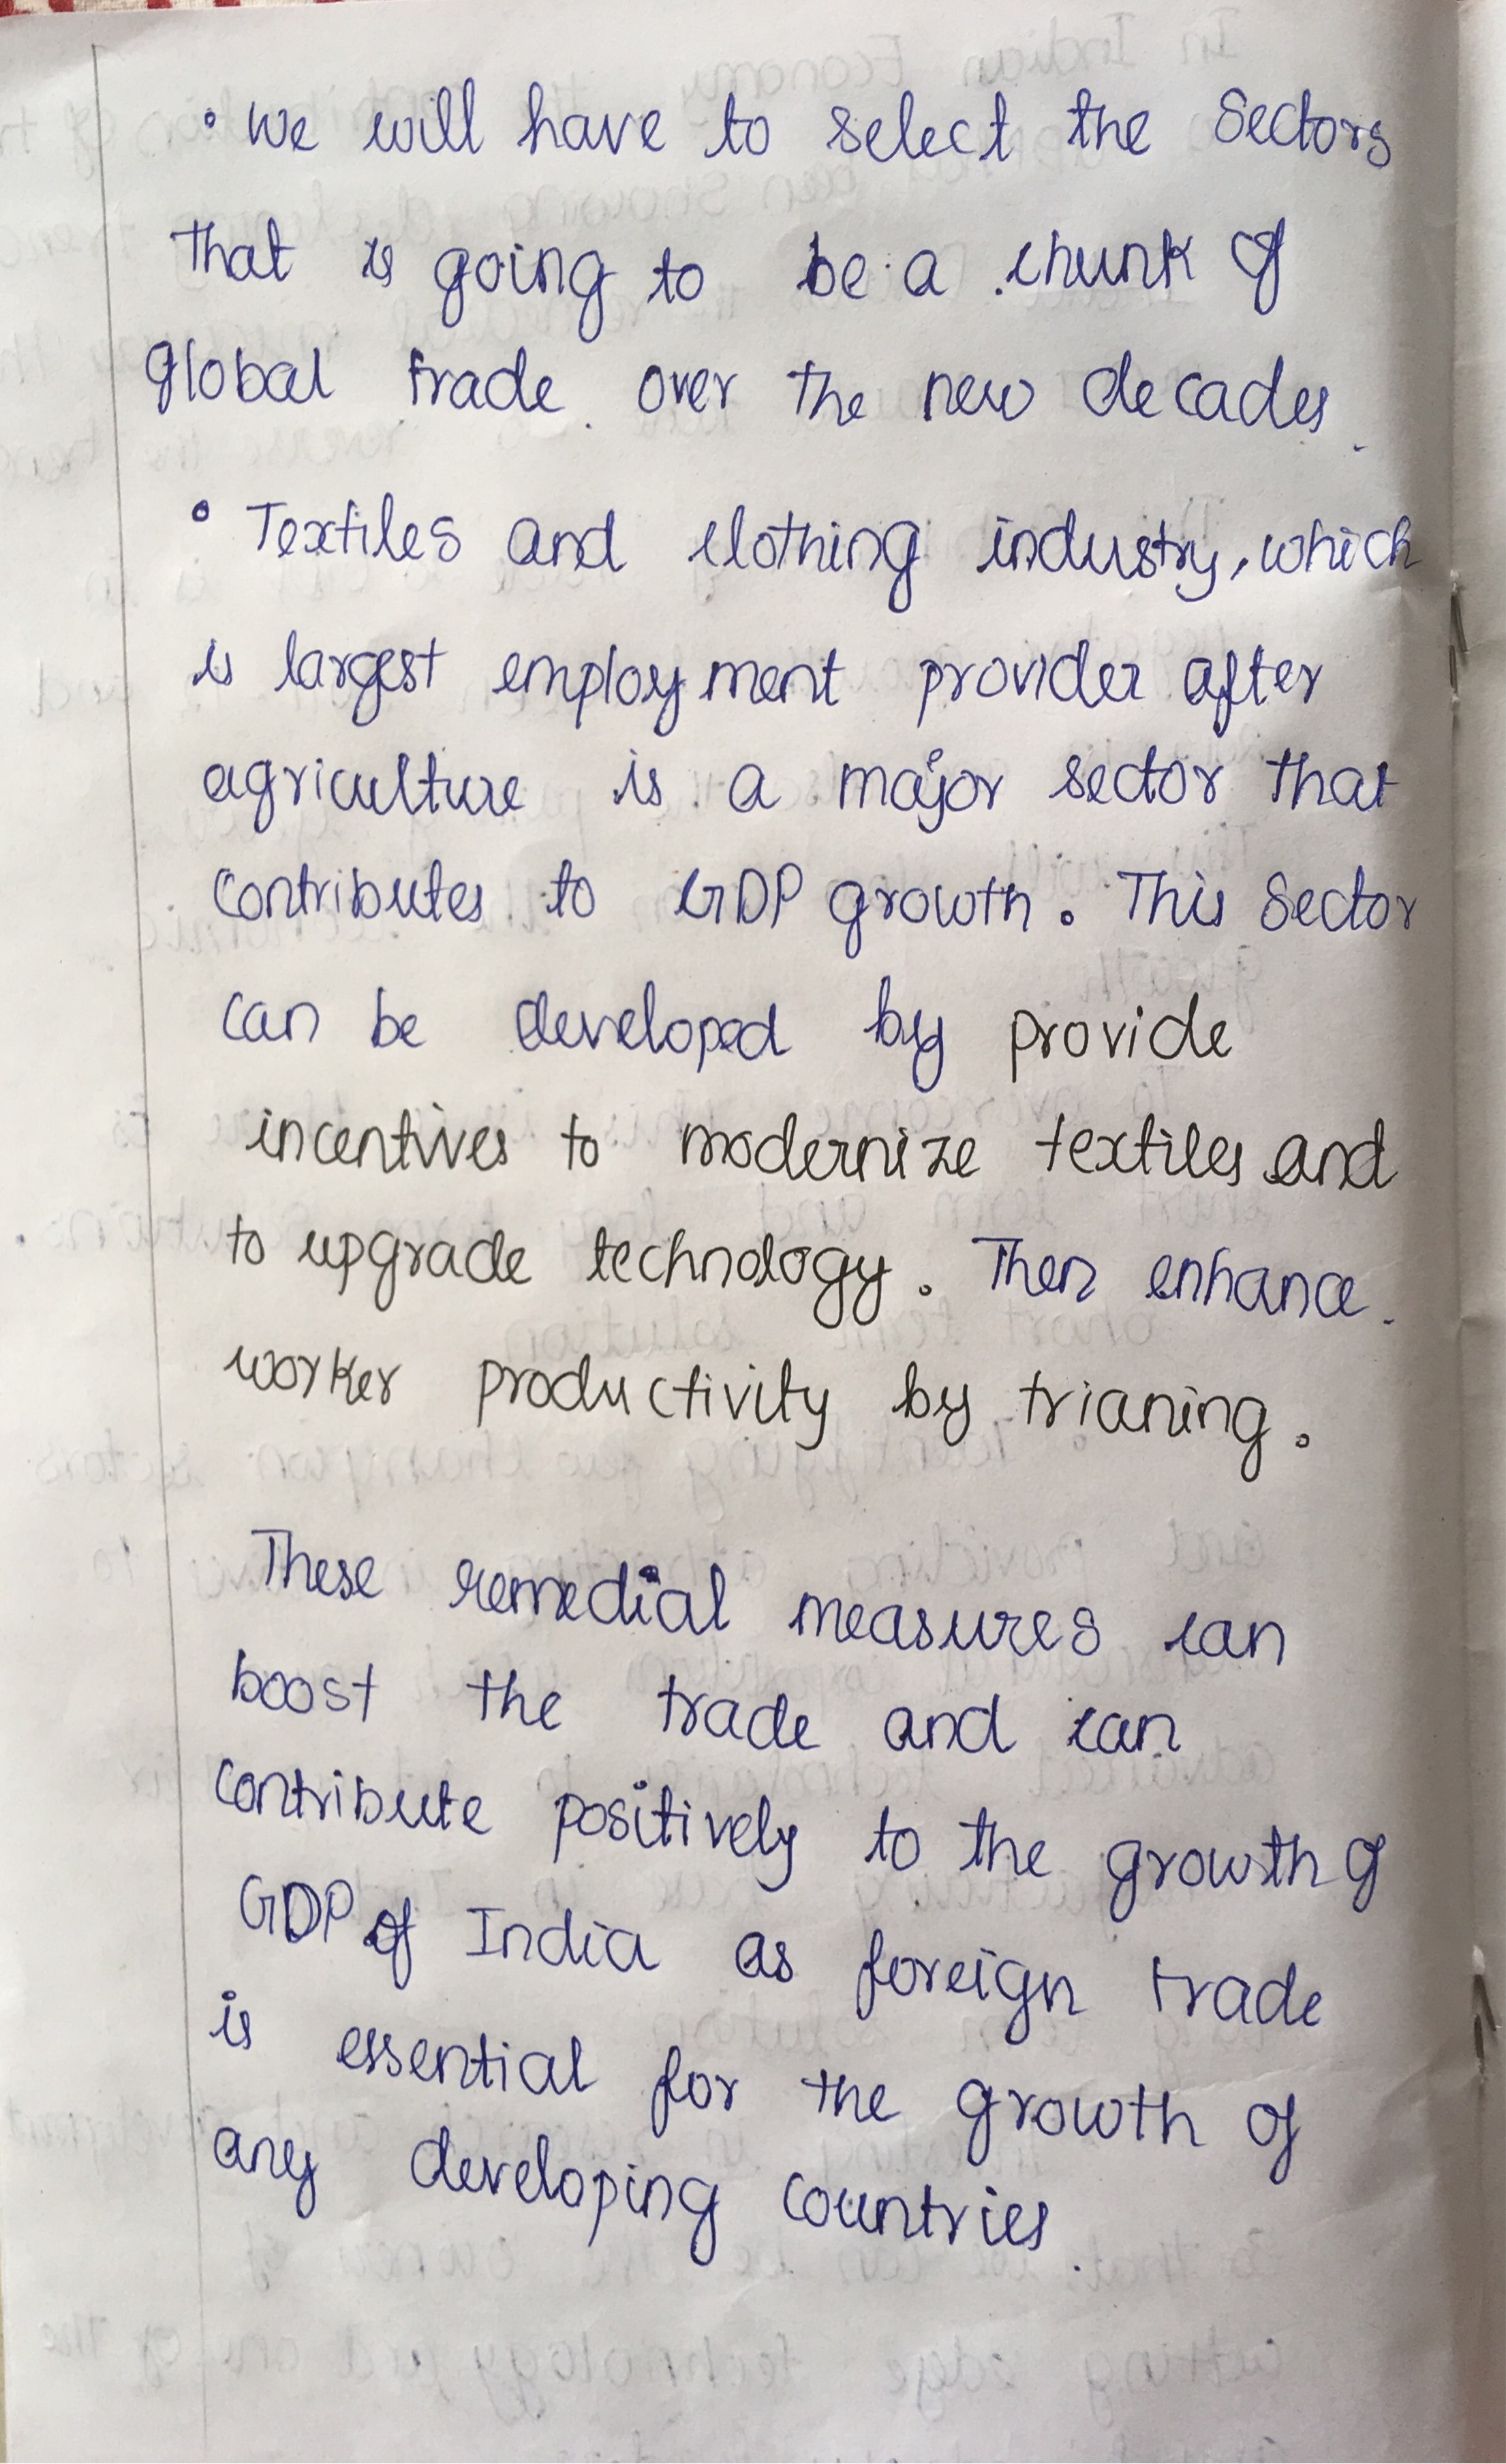 • We will have to select the Sectors
that is going to be a chunk of
global trade over the new decades.
• Textiles and clothing industry, which
is largest employment provider after
agriculture is a major sector that
contributes to GDP growth. This Sector
can be developed by provide
incentives to modernize textiles and
to upgrade technology. Then enhance
worker productivity by trianing.
These remedial measures can
boost the trade and can
contribute positively to the growth of
GDP of India as foreign trade
is essential for the growth of
any developing countries.